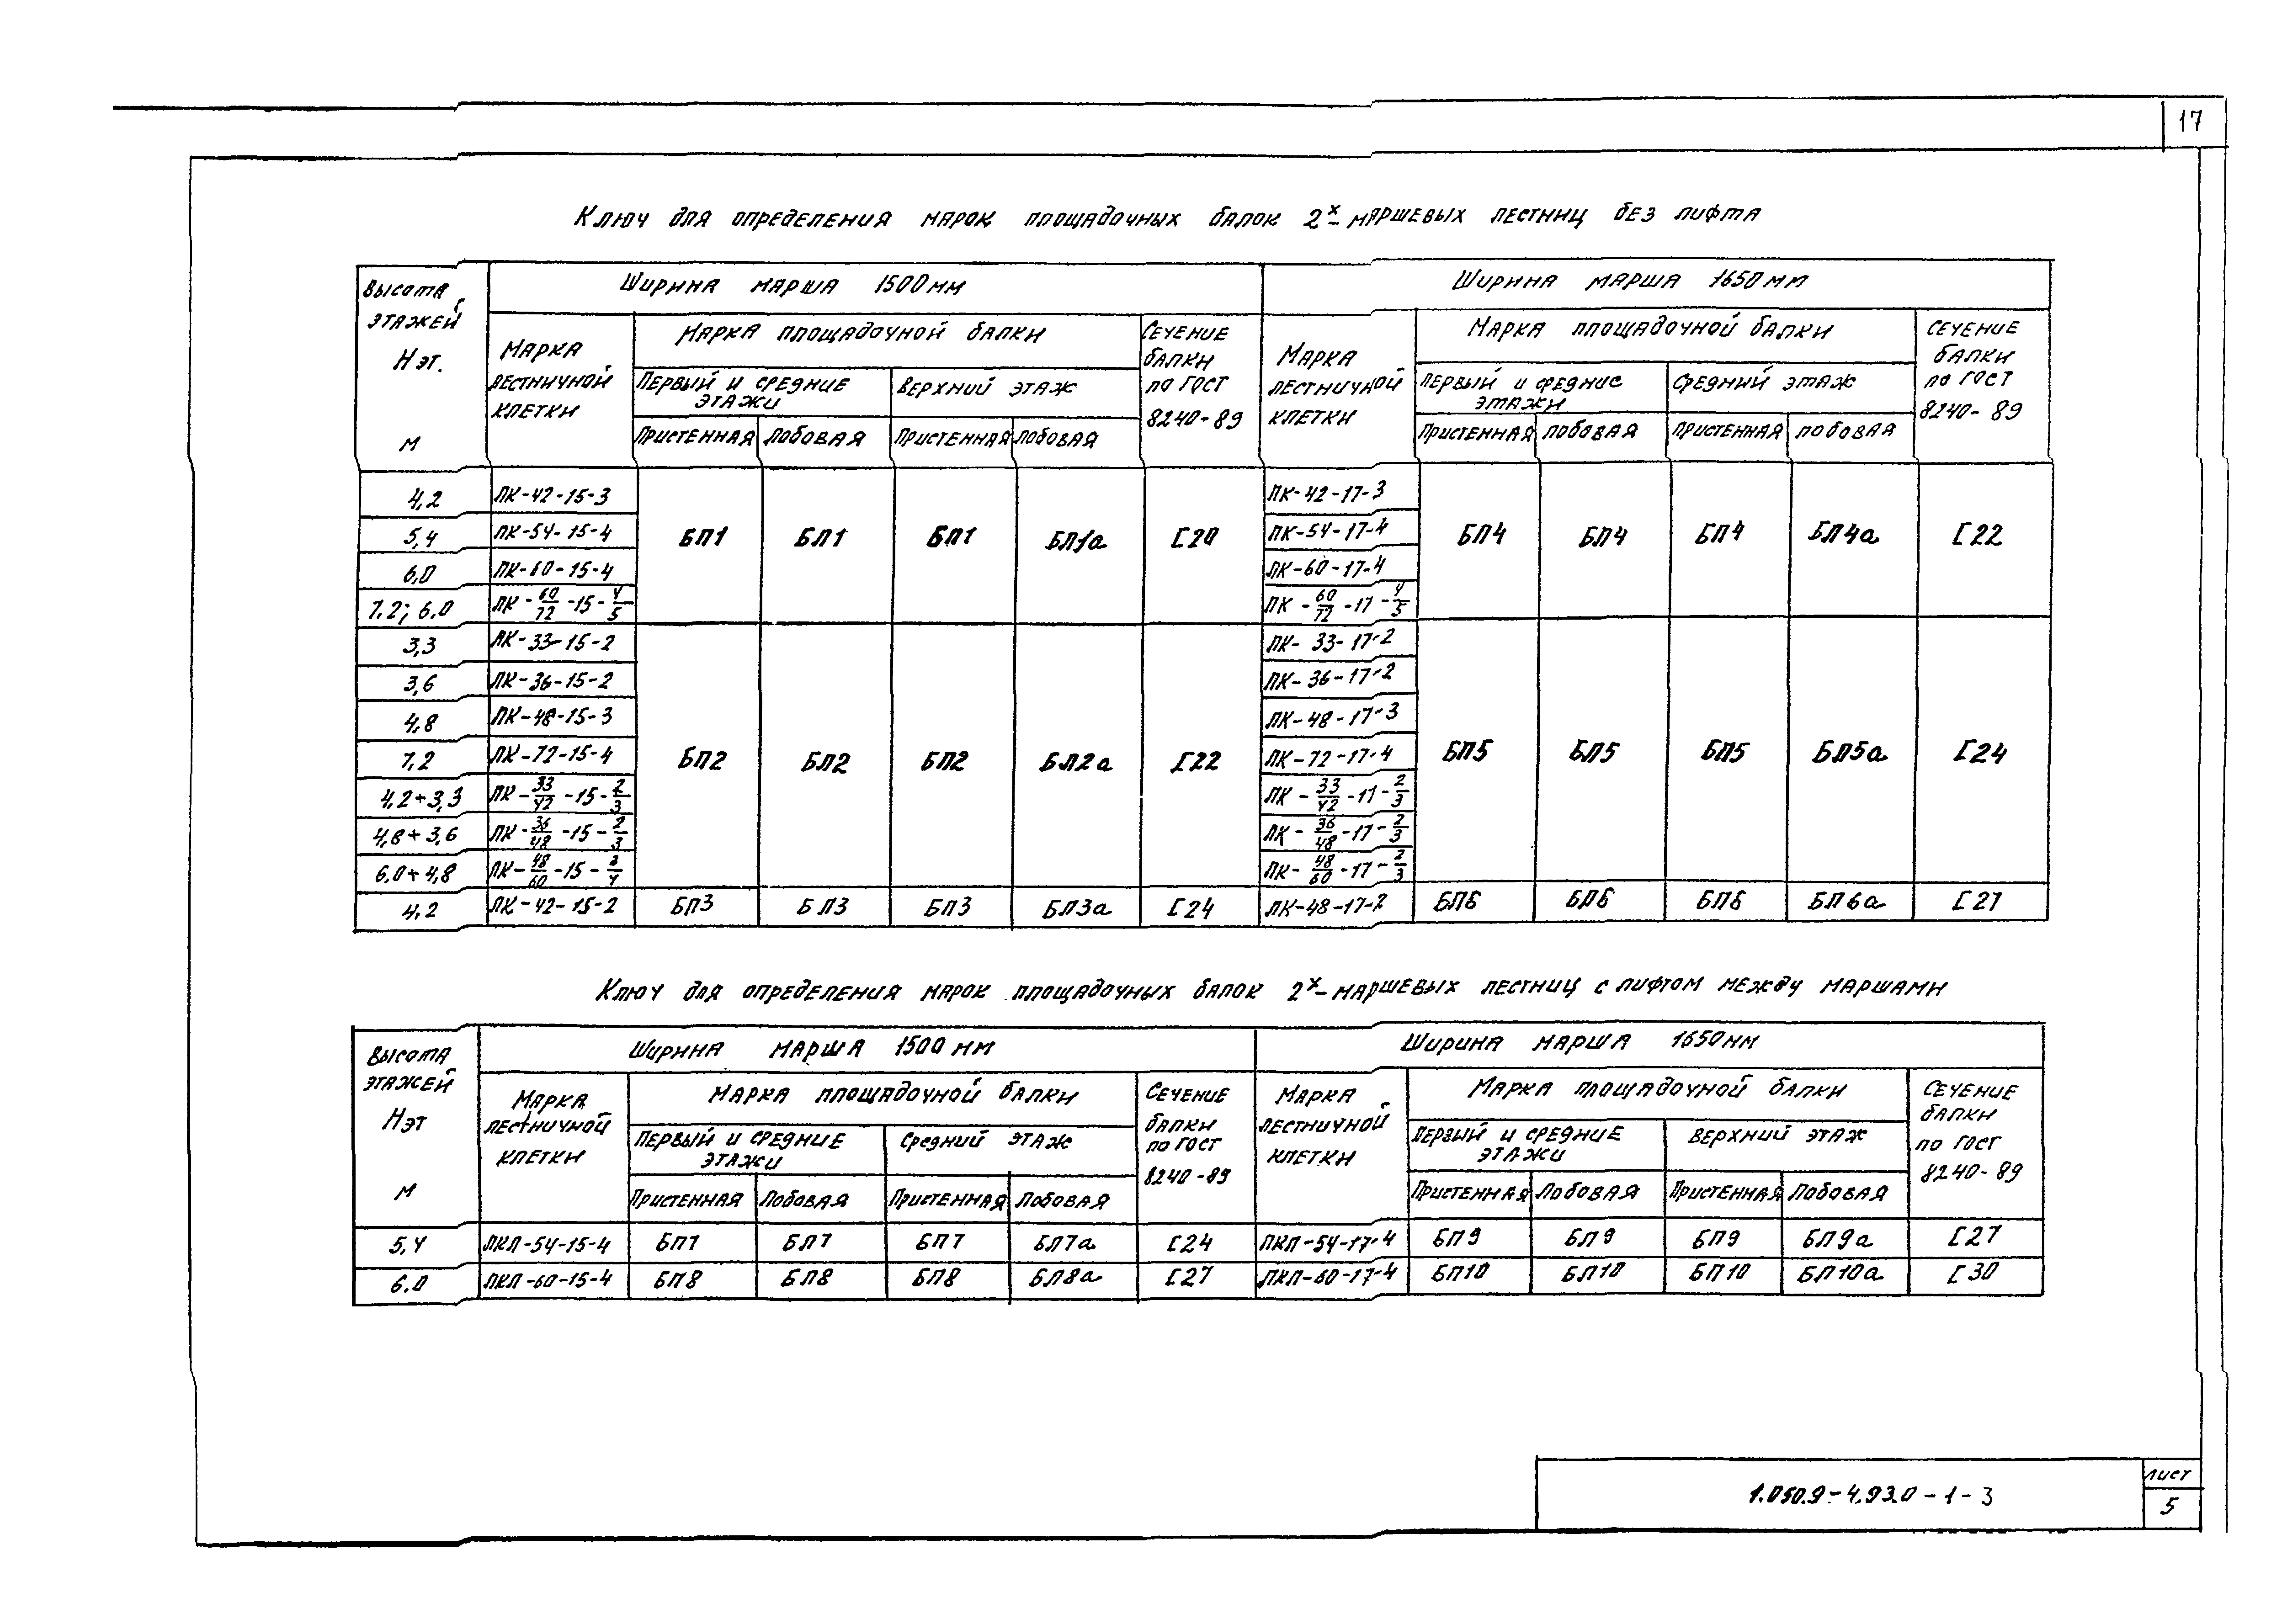 17
Ключ для определения марок площадочных балок 2х-маршевых лестниц без лифта
Высота этажей Нэт. м
Ширина марша 1500мм
Ширина марша 1650мм
Марка лестничной клетки
Марка площадочной балки
Сечение балки по ГОСТ 8240-89
Марка лестничной клетки
Марка площадочной балки
Сечение балки по ГОСТ 8240-89
Первый и средние этажи
Верхний этаж
Первый и средние этажи
Средний этаж
Пристенная Лобовая Пристенная Лобовая
Пристенная Лобовая Пристенная Лобовая
4,2 ЛК-42-15-3 ЛК-42-17-3
5,4 ЛК-54-15-4 БП1 БЛ1 БП1 БЛ1а [20 ЛК-54-17-4 БП4 БЛ4 БП4 БЛ4а [22
6,0 ЛК-60-15-4 ЛК-60-17-4
7.2; 6.0 ЛК-60/72-15-4/5 ЛК-60/72-17-4/5
3,3 ЛК-33-15-2 ЛК-33-17-2
3,6 ЛК-36-15-2 ЛК-36-17-2
4,8 ЛК-48-15-3 ЛК-48-17-3
7,2 ЛК-72-15-4 БП2 БЛ2 БП2 БЛ2а [22 ЛК-72-17-4 БП5 БЛ5 БП5 БЛ5а [24
4,2+3,3 ЛК-33/42-15-2/3 ЛК-33/42-17-2/3
4,8+3,6 ЛК-36/48-15-2/3 ЛК-36/48-17-2/3
6.0+4,8 ЛК-48/60-15-3/4 ЛК-48/60-17-2/3
4,2 ЛК-42-15-2 БП3 БЛ3 БП3 БЛ3а [24 ЛК-48-17-2 БП6 БЛ6 БП6 БЛ6а [27
Ключ для определения марок площадочных балок 2х-маршевых лестниц с лифтом между маршами
Высота этажей Нэт м
Ширина марша 1500мм
Ширина марша 1650мм
Марка лестничной клетки
Марка площадочной балки
Сечение балки по ГОСТ 8240-89
Марка лестничной клетки
Марка площадочной балки
Сечение балки по ГОСТ 8240-89
Первый и средние этажи
Средний этаж
Первый и средние этажи
Верхний этаж
Пристенная Лобовая Пристенная Лобовая
Пристенная Лобовая Пристенная Лобовая
5,4 ЛКЛ-54-15-4 БП7 БЛ7 БП7 БЛ7а [24 ЛКЛ-54-17-4 БП9 БЛ9 БП9 БЛ9а [27
6.0 ЛКЛ-60-15-4 БП8 БЛ8 БП8 БЛ8а [27 ЛКЛ-60-17-4 БП10 БЛ10 БП10 БЛ10а [30
1.050.9-4.93.0-1-3
Лист
5